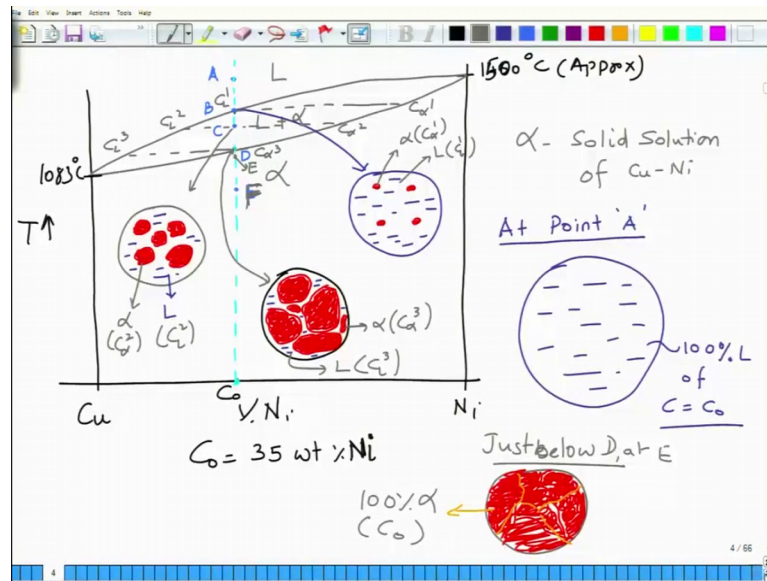 File Edit View Insert Actions Tools Help
B I
A
L
1500°C (Approx)
B
C_L^1
C_L^2
C
L + α
C_α^1
C_α^2
C_L^3
D
C_α^3
E
α
F
1083°C
T↑
α(C_α^1)
L(C_L^1)
α - Solid Solution
of Cu-Ni
At Point 'A'
α
(C_α^2)
L
(C_L^2)
α(C_α^3)
L(C_L^3)
100% L
of
C = C_0
Cu
C_0
%Ni
Ni
C_0 = 35 wt % Ni
Just below D, at E
100% α
(C_0)
4 / 66
4